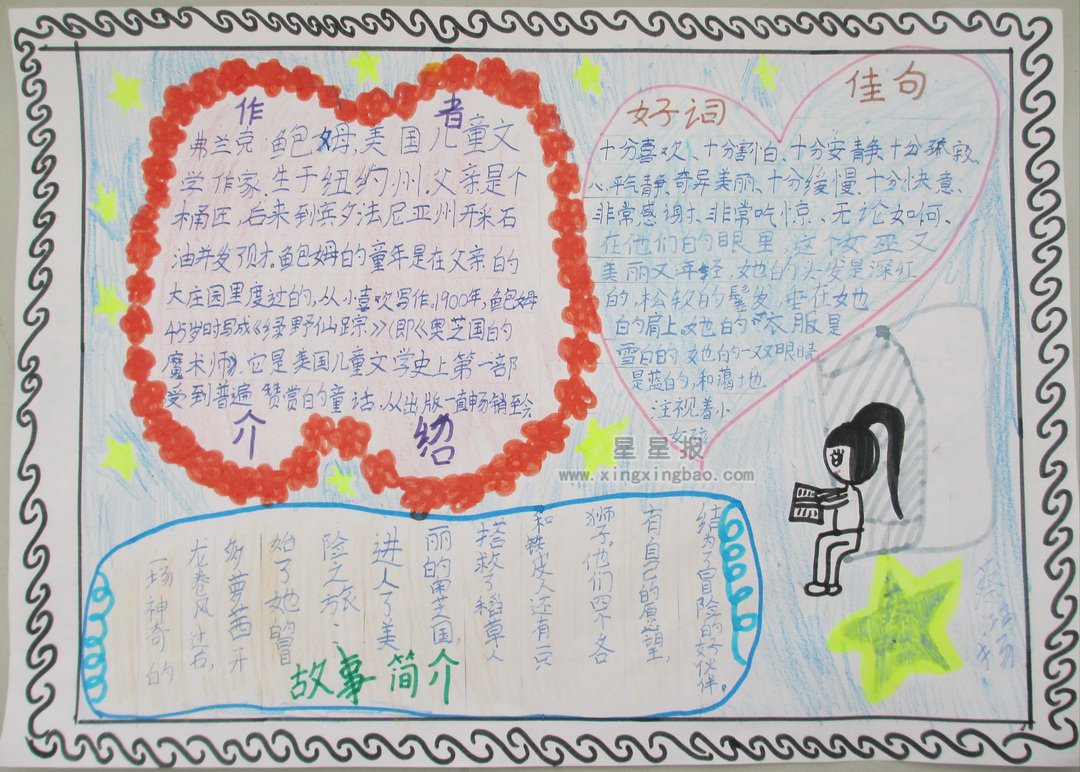 作者
弗兰克·鲍姆,美国儿童文
学作家.生于纽约州.父亲是个
桶匠,后来到宾夕法尼亚州开采石
油并发现才.鲍姆的童年是在父亲的
大庄园里度过的,从小喜欢写作,1900年,鲍姆
45岁时写成《绿野仙踪》(即《奥芝国的
魔术师》.它是美国儿童文学史上第一部
受到普遍赞赏的童话,从出版一直畅销至今
介绍
好词
佳句
十分喜欢、十分害怕、十分安静、十分
心平气静、奇异美丽、十分缓慢、十分快意、
非常感谢、非常吃惊、无论如何、
在他们的眼里,这个女巫又
美丽又年轻.她的头发是深红
的,松软的鬈发,垂在她
的肩上.她的衣服是
雪白的,她的一双眼睛
是蓝的,和蔼地
注视着小
女孩
星星报
www.xingxingbao.com
一场神奇的
龙卷风过后,
多萝茜开
始了她的冒
险之旅……
进入了美
丽的奥芝国,
搭救了稻草人
和铁皮人还有一只
狮子。他们四个各
有自己的愿望,
结为了冒险的好伙伴。
故事简介